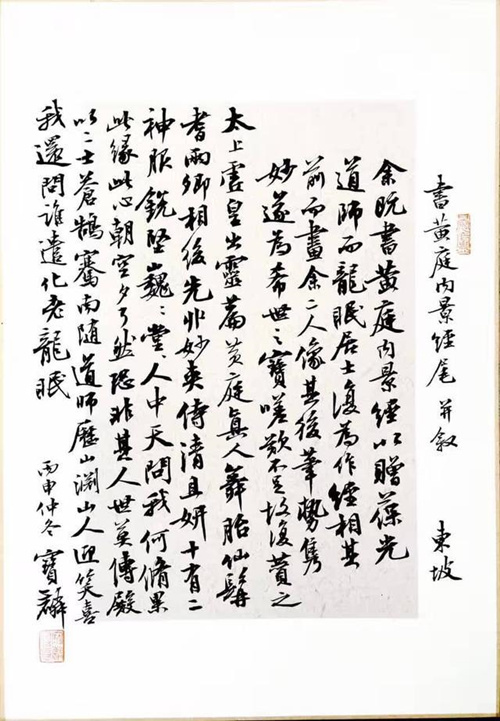 書黃庭內景經尾并叙 東坡
余既書黃庭內景經以贈葆光
道師而龍眠居士復為作經相其
前而畫余二人像其後筆勢雋
妙遂為希世之寶嗟歎不足故復贊之
太上虛皇出靈篇黃庭真人舞胎仙髯
耆兩卿相後先丱妙夾侍清且妍十有二
神服銳堅巍〻堂〻人中天問我何脩果
此緣此心朝空夕了然恐非其人世莫傳殿
以二士蒼鵠騫南隨道師歷山淵山人迎笑喜
我還問誰遣化老龍眠
丙申仲冬 寶麟